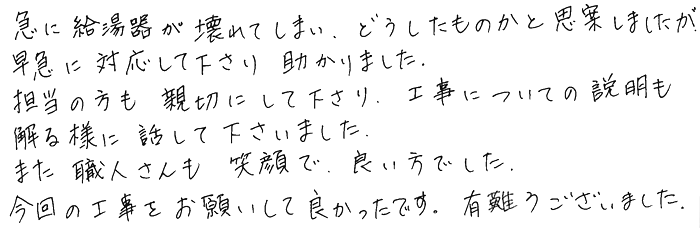 急に給湯器が壊れてしまい、どうしたものかと思案しましたが、
早急に対応して下さり助かりました.
担当の方も親切にして下さり、工事についての説明も
解る様に話して下さいました.
また職人さんも笑顔で、良い方でした.
今回の工事をお願いして良かったです。有難うございました.